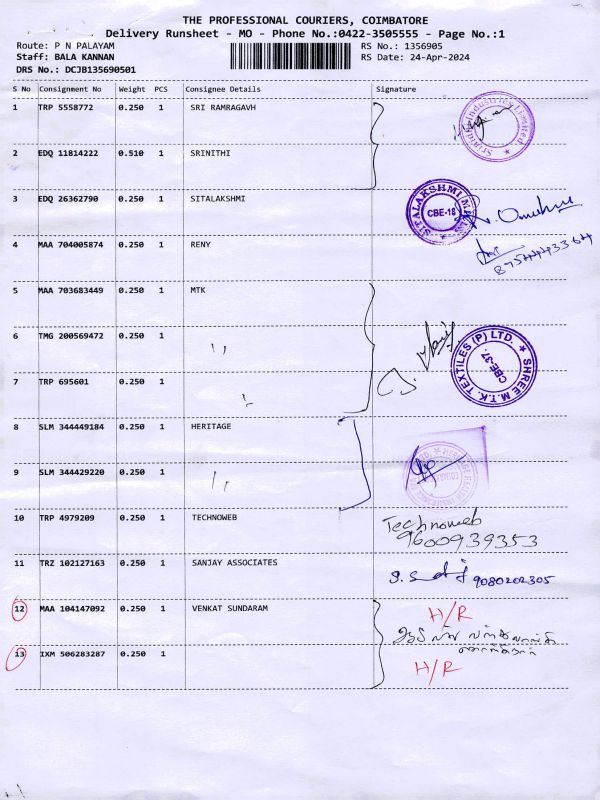 THE PROFESSIONAL COURIERS, COIMBATORE
Delivery Runsheet - MO - Phone No.:0422-3505555 - Page No.:1
Route: P N PALAYAM
RS No.: 1356905
Staff: BALA KANNAN
RS Date: 24-Apr-2024
DRS No.: DCJB135690501
S No Consignment No Weight PCS Consignee Details Signature
1 TRP 5558772 0.250 1 SRI RAMRAGAVH
2 EDQ 11814222 0.510 1 SRINITHI
3 EDQ 26362790 0.250 1 SITALAKSHMI
SITALAKSHMI MILLS
CBE-18
4 MAA 704005874 0.250 1 RENY
8754443364
5 MAA 703683449 0.250 1 MTK
6 TMG 200569472 0.250 1 ''
SHREE M.T.K. TEXTILES (P) LTD.
CBE-37.
7 TRP 695601 0.250 1
8 SLM 344449184 0.250 1 HERITAGE
9 SLM 344429220 0.250 1 ''
10 TRP 4979209 0.250 1 TECHNOWEB Technoweb
9600939353
11 TRZ 102127163 0.250 1 SANJAY ASSOCIATES 9080202305
12 MAA 104147092 0.250 1 VENKAT SUNDARAM H/R
13 IXM 506283287 0.250 1 H/R